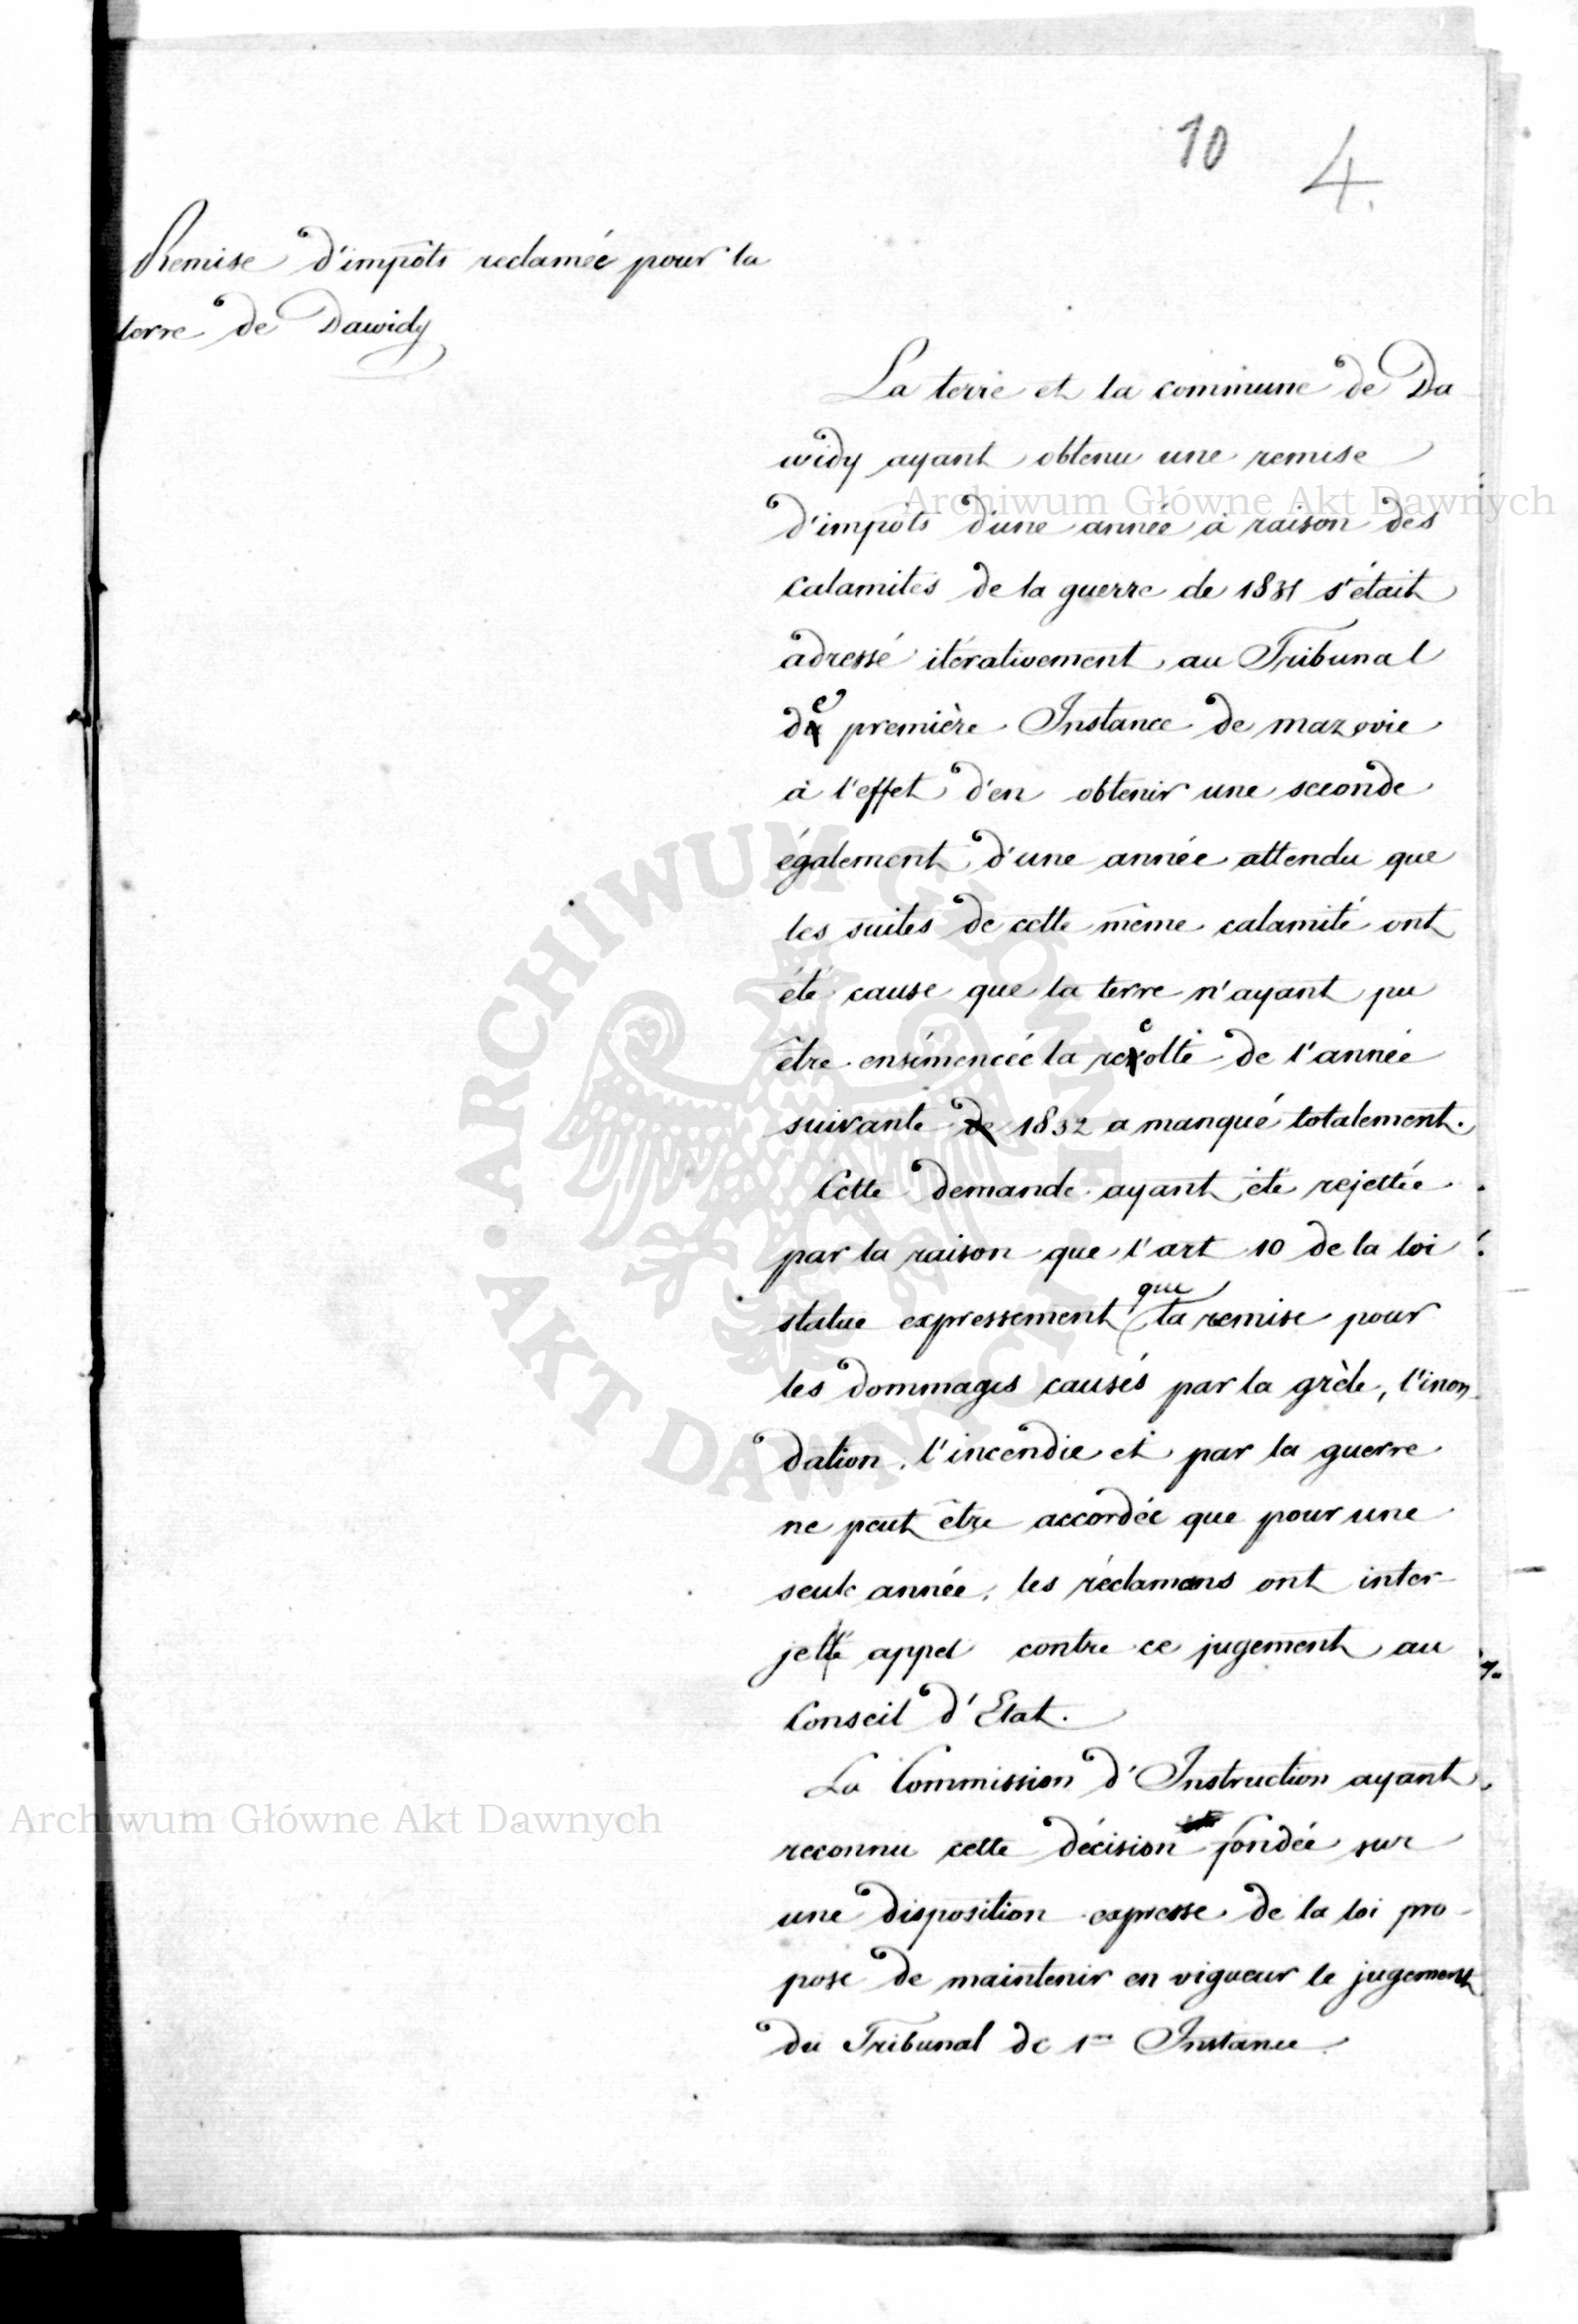 10 4.
Remise d'impôts reclamée pour la
terre de Dawidy
La terre et la commune de Da
widy ayant obtenu une remise
d'impôts d'une année à raison des
calamités de la guerre de 1831 s'était
adressé itérativement au Tribunal
de première Instance de mazovie
à l'effet d'en obtenir une seconde
également d'une année attendu que
les suites de cette même calamité ont
été cause que la terre n'ayant pu
être ensémencée la recolte de l'année
suivante de 1832 a manqué totalement.
Cette demande ayant été rejettée
par la raison que l'art 10 de la loi
statue expressement que la remise pour
les dommages causés par la grèle, l'inon
dation, l'incendie et par la guerre
ne peut être accordée que pour une
seule année, les réclamans ont inter-
jetté appel contre ce jugement au
Conseil d'Etat.
La Commission d'Instruction ayant
reconnu cette décision fondée sur
une disposition expresse de la loi pro-
pose de maintenir en vigueur le jugement
du Tribunal de 1re Instance.
Archiwum Główne Akt Dawnych
ARCHIWUM GŁÓWNE AKT DAWNYCH
Archiwum Główne Akt Dawnych